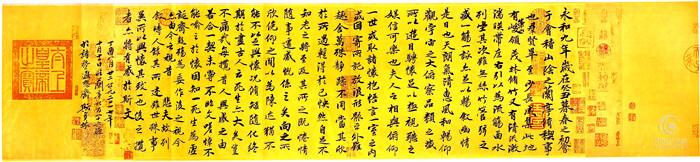 永和九年歲在癸丑暮春之初會
于會稽山陰之蘭亭脩稧事
也羣賢畢至少長咸集此地
有崇山峻領茂林脩竹又有清流激
湍暎帶左右引以為流觴曲水
列坐其次雖無絲竹管弦之
盛一觴一詠亦足以暢叙幽情
是日也天朗氣清惠風和暢仰
觀宇宙之大俯察品類之盛
所以遊目騁懷足以極視聽之
娛信可樂也夫人之相與俯仰
一世或取諸懷抱悟言一室之內
或因寄所託放浪形骸之外雖
趣舍萬殊靜躁不同當其欣
於所遇暫得於己快然自足不
知老之將至及其所之既惓情
隨事遷感慨係之矣向之所
欣俛仰之間以為陳迹猶不
能不以之興懷況脩短隨化終
期於盡古人云死生亦大矣豈
不痛哉每攬昔人興感之由
若合一契未嘗不臨文嗟悼不
能喻之於懷固知一死生為虛
誕齊彭殤為妄作後之視今
亦由今之視昔悲夫故列
敘時人錄其所述雖世殊事
異所以興懷其致一也後之攬
者亦將有感於斯文